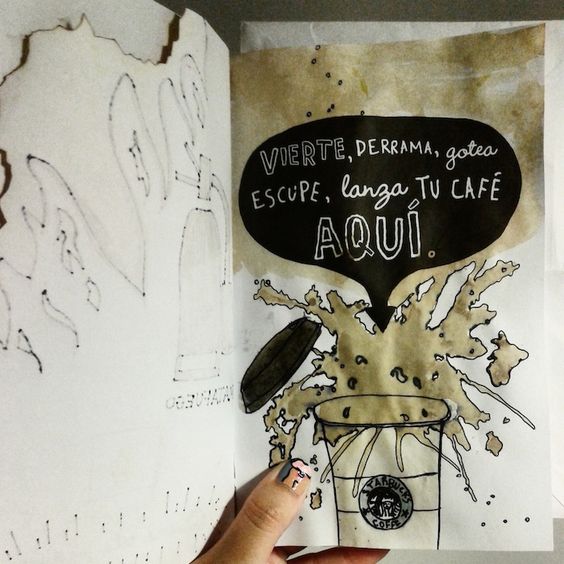 VIERTE, DERRAMA, gotea
ESCUPE, lanza TU CAFÉ
AQUÍ.
STARBUCKS
COFFEE